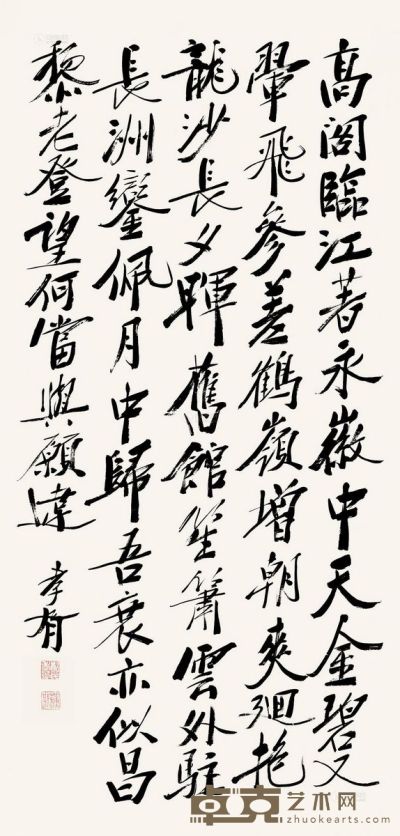 高閣臨江著永徽中天金碧又
翬飛參差鶴嶺增朝爽廻抱
龍沙長夕暉舊館笙簫雲外駐
長洲鑾佩月中歸吾衰亦似昌
黎老登望何當與願違
孝胥
卓克艺术网
zhuokearts.com